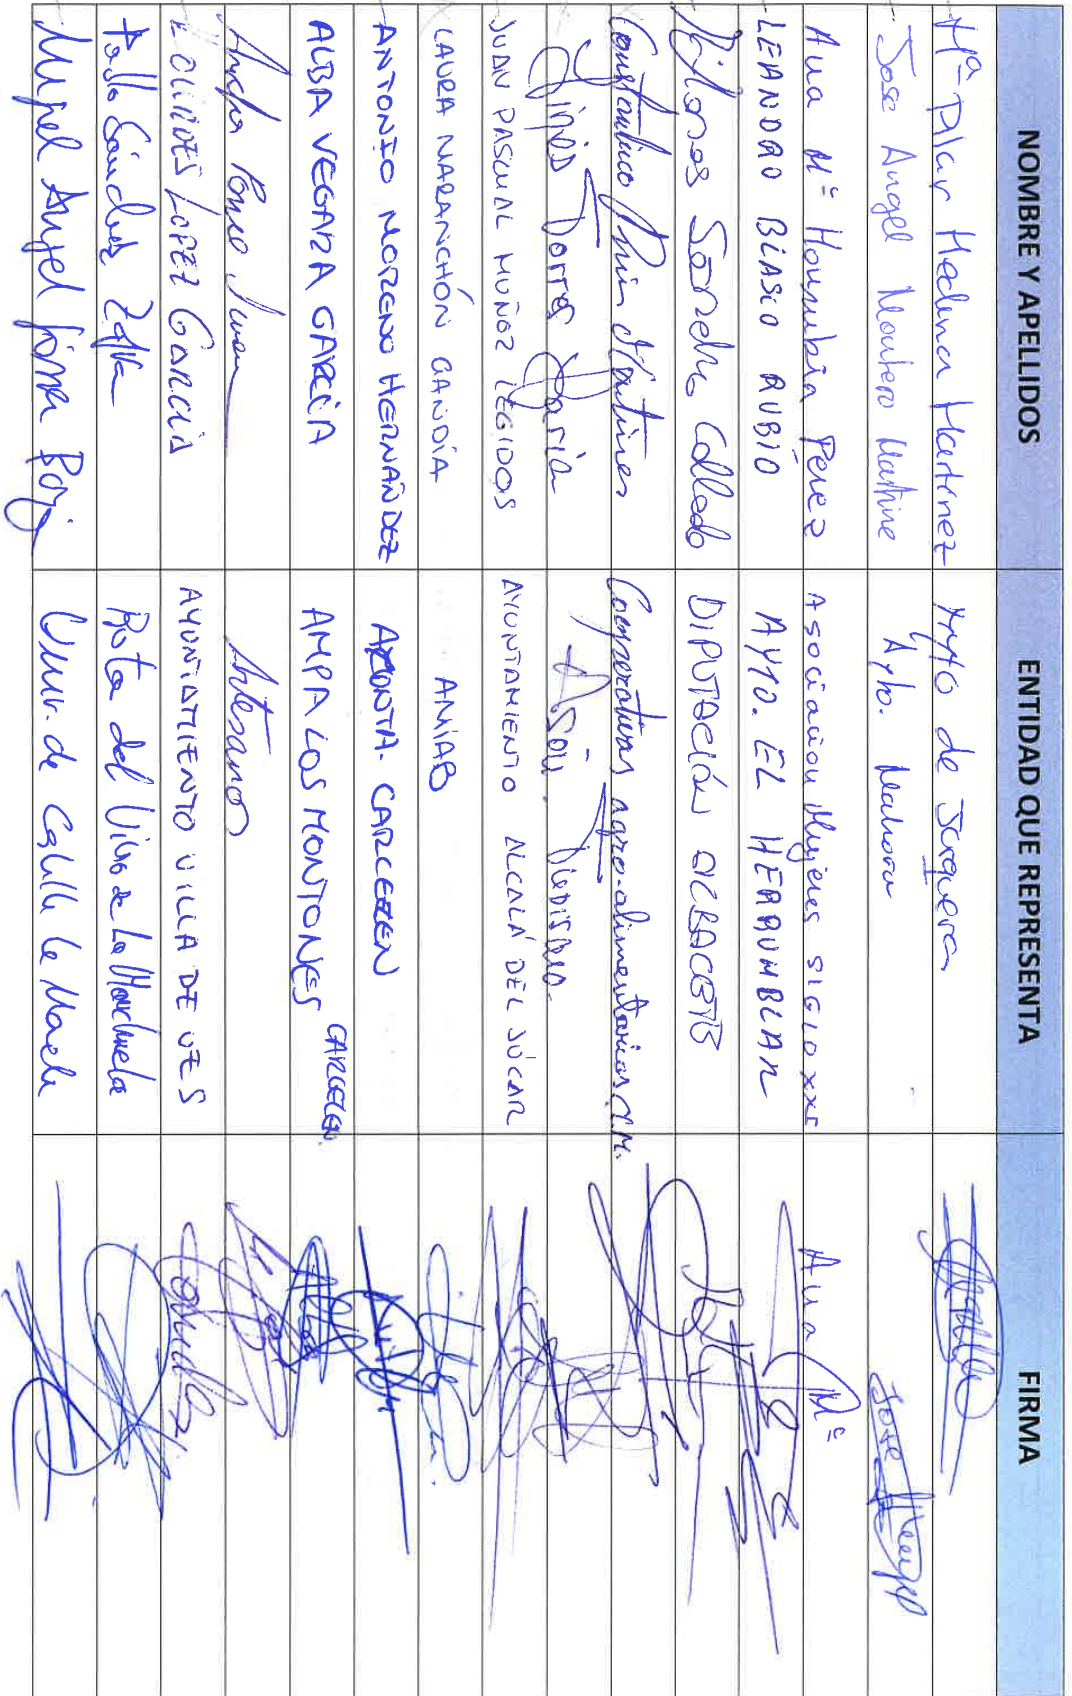 NOMBRE Y APELLIDOS ENTIDAD QUE REPRESENTA FIRMA
Mª Pilar Medina Martinez Ayto de Jorquera
Jose Angel Montero Martine Ayto. Mahora Jose Angel
Ana Mª Honrubia Pérez Asociación Mujeres siglo XXI Ana Mª
LEANDRO BLASCO RUBIO AYTO. EL HERRUMBLAR
Dolores Sánchez Collado DIPUTACIÓN ALBACETE
Constantino Martínez Cooperativas agro-alimentarias C.M.
Ginés Torres García Asoc.
JUAN PASCUAL MUÑOZ LEGIDOS AYUNTAMIENTO ALCALÁ DEL JÚCAR
LAURA NARANCHÓN GANDÍA AMIAB
ANTONIO MORENO HERNÁNDEZ CARCELEN
ALBA VEGARA GARCÍA AMPA LOS MONTONES CARCELEN
Artesano
LOURDES LOPEZ GARCIA AYUNTAMIENTO VILLA DE VES
Pablo Sánchez Ruta del Vino de La Manchuela
Miguel Angel Univ. de Castilla la Mancha